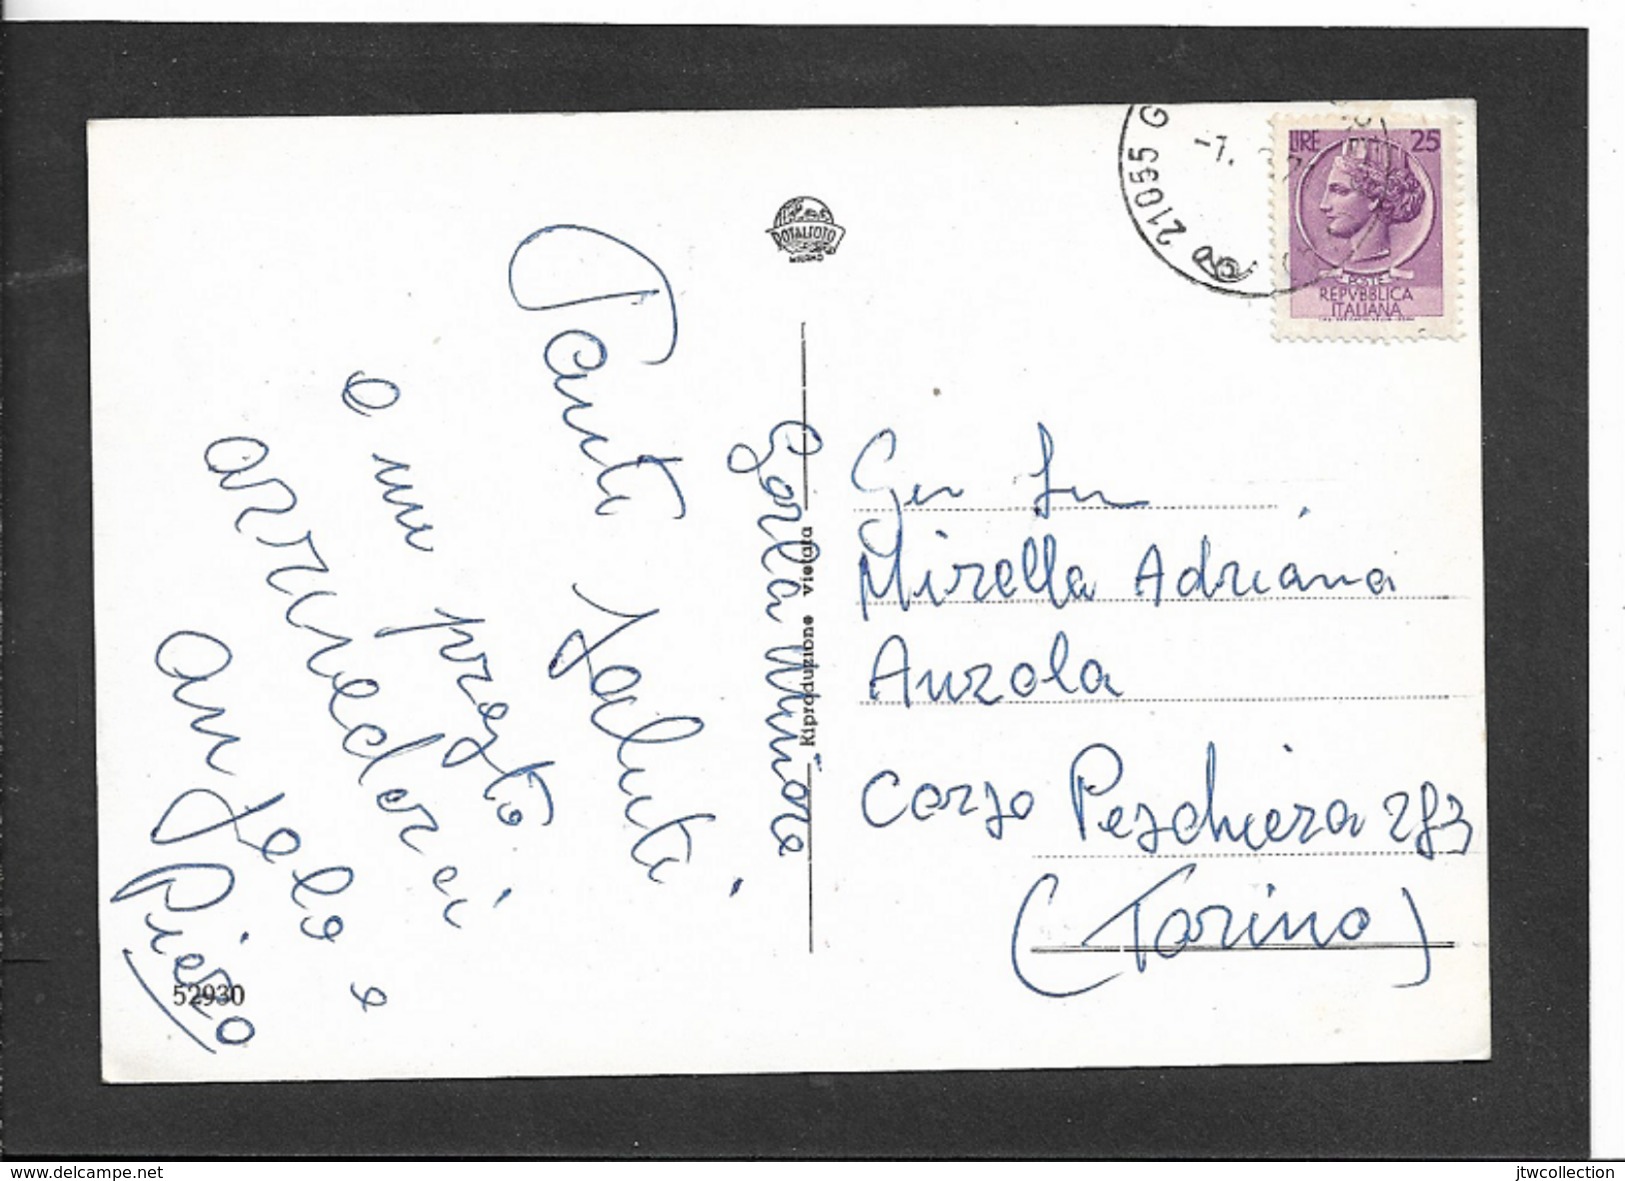 Tanti saluti
e un presto
arrivederci
angelo e
Piero
52930
ROTALFOTO
MILANO
Gorla Minore
Riproduzione vietata
21055 G
-7.
LIRE 25
POSTE
REPVBBLICA
ITALIANA
Gen
Mirella Adriana
Auzola
Corso Peschiera 283
(Torino)
www.delcampe.net
jtwcollection